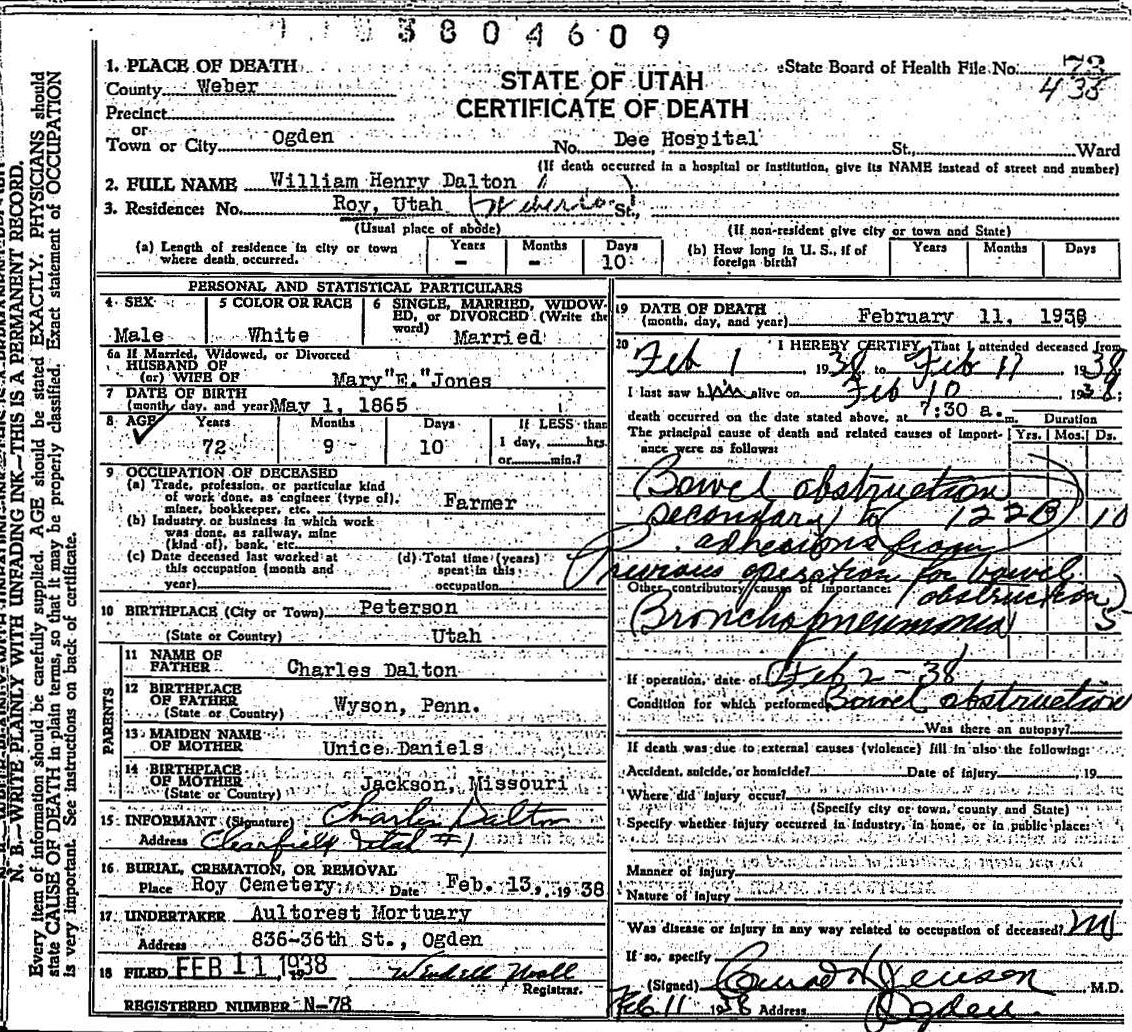 3804609
1. PLACE OF DEATH
County Weber
Precinct
or
Town or City Ogden No. Dee Hospital St., Ward
STATE OF UTAH
CERTIFICATE OF DEATH
State Board of Health File No. 73
435
(If death occurred in a hospital or institution, give its NAME instead of street and number)
2. FULL NAME William Henry Dalton
3. Residence: No. Roy, Utah St.,
(Usual place of abode) (If non-resident give city or town and State)
(a) Length of residence in city or town where death occurred. Years - Months - Days 10
(b) How long in U. S., if of foreign birth? Years Months Days
PERSONAL AND STATISTICAL PARTICULARS
4 SEX Male
5 COLOR OR RACE White
6 SINGLE, MARRIED, WIDOWED, or DIVORCED (Write the word) Married
6a If Married, Widowed, or Divorced
HUSBAND OF
(or) WIFE OF Mary "E." Jones
7 DATE OF BIRTH
(month, day, and year) May 1, 1865
8 AGE Years 72 Months 9 Days 10 If LESS than 1 day, hrs. or min.?
9 OCCUPATION OF DECEASED
(a) Trade, profession, or particular kind
of work done, as engineer (type of),
miner, bookkeeper, etc. Farmer
(b) Industry or business in which work
was done, as railway, mine
(kind of), bank, etc.
(c) Date deceased last worked at
this occupation (month and
year)
(d) Total time (years)
spent in this
occupation
10 BIRTHPLACE (City or Town) Peterson
(State or Country) Utah
PARENTS
11 NAME OF
FATHER Charles Dalton
12 BIRTHPLACE
OF FATHER
(State or Country) Wyson, Penn.
13 MAIDEN NAME
OF MOTHER Unice Daniels
14 BIRTHPLACE
OF MOTHER
(State or Country) Jackson, Missouri
15 INFORMANT (Signature) Charles Dalton
Address Clearfield Utah #1
16 BURIAL, CREMATION, OR REMOVAL
Place Roy Cemetery Date Feb. 13, 1938
17 UNDERTAKER Aultorest Mortuary
Address 836-36th St., Ogden
18 FILED FEB 11 1938
Registrar.
REGISTERED NUMBER N-78
19 DATE OF DEATH
(month, day, and year) February 11, 1938
20 I HEREBY CERTIFY, That I attended deceased from
Feb 1, 1938 to Feb 11 1938
I last saw him alive on Feb 10 1938;
death occurred on the date stated above, at 7:30 a.m.
The principal cause of death and related causes of importance were as follows:
Duration
Yrs. Mos. Ds.
Bowel obstruction
secondary to 122B 10
adhesions from
previous operation for bowel
obstruction
Other contributory causes of importance:
Bronchopneumonia 5
If operation, date of Feb 2-38
Condition for which performed Bowel obstruction
Was there an autopsy?
If death was due to external causes (violence) fill in also the following:
Accident, suicide, or homicide? Date of injury 19
Where did injury occur?
(Specify city or town, county and State)
Specify whether injury occurred in industry, in home, or in public place:
Manner of injury
Nature of injury
Was disease or injury in any way related to occupation of deceased?
If so, specify
(Signed) Conrad H Jenson M.D.
Feb 11 1938 Address Ogden
N. B.—WRITE PLAINLY WITH UNFADING INK—THIS IS A PERMANENT RECORD.
Every item of information should be carefully supplied. AGE should be stated EXACTLY. PHYSICIANS should
state CAUSE OF DEATH in plain terms, so that it may be properly classified. Exact statement of OCCUPATION
is very important. See instructions on back of certificate.